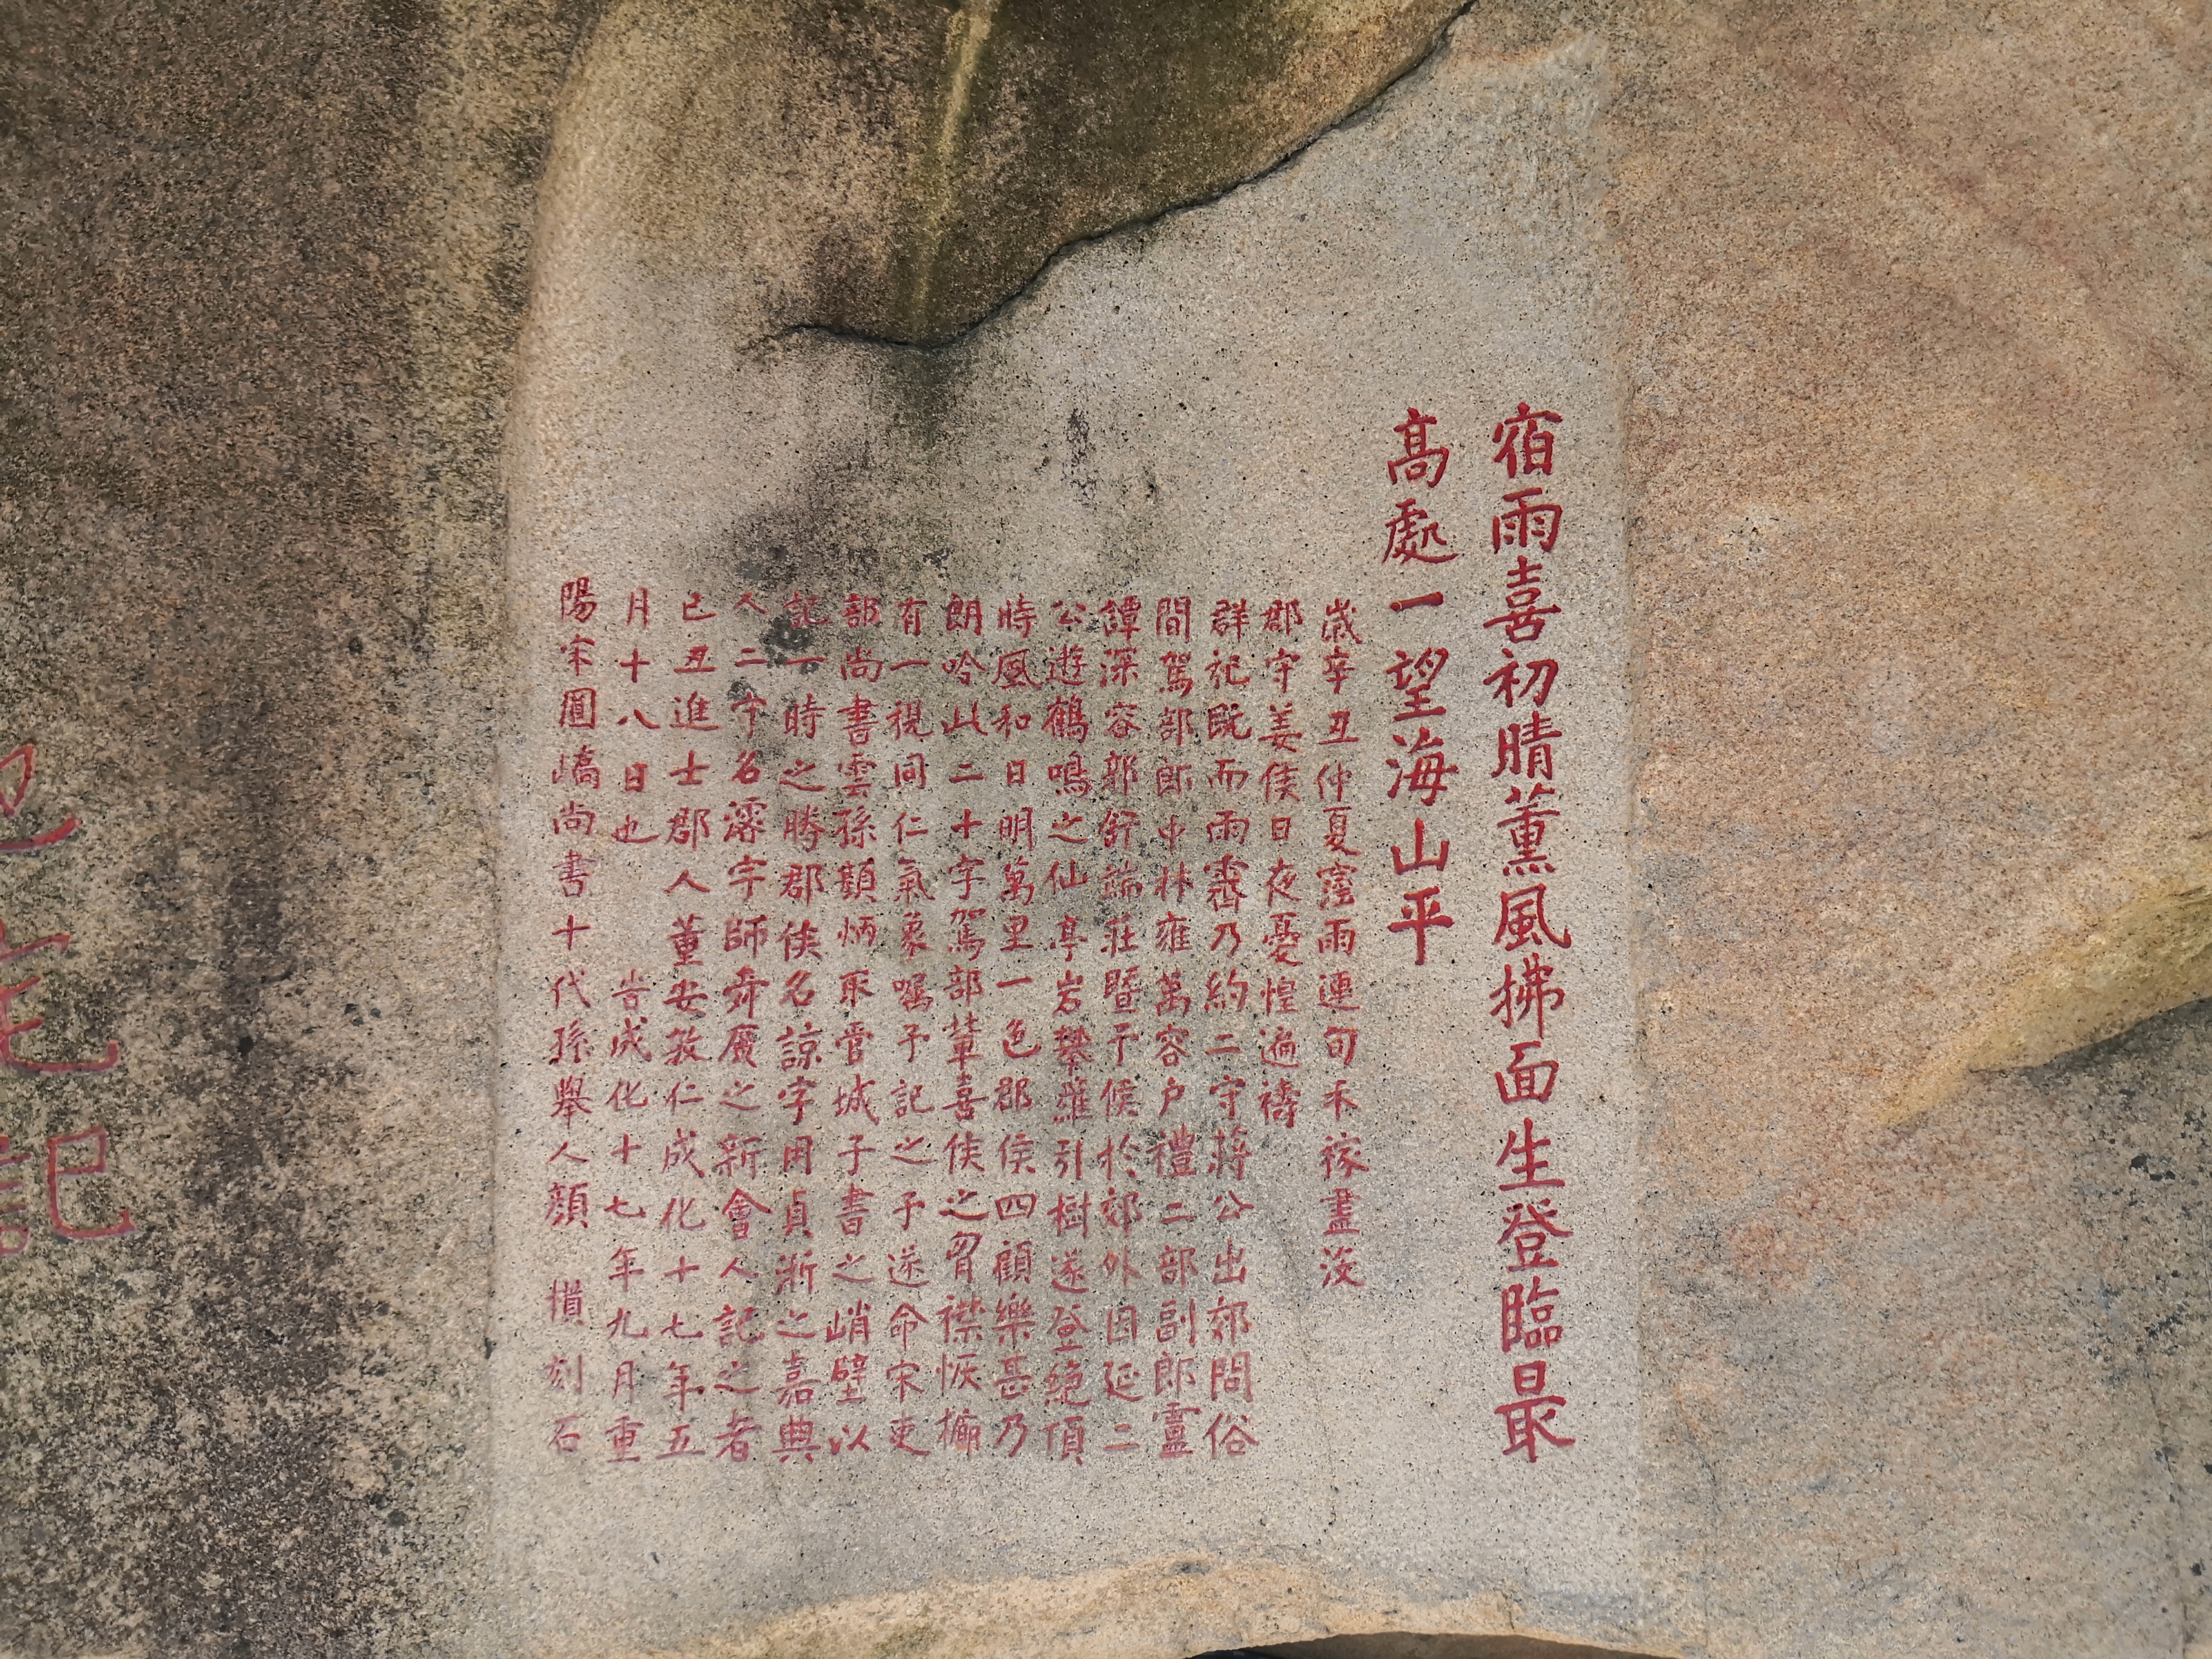 宿雨喜初晴薰風拂面生登臨最
高處一望海山平
歲辛丑仲夏霪雨連旬禾稼盡没
郡守姜侯日夜憂惶遍禱
群祀既而雨霽乃約二守蔣公出郊問俗
間駕部郎中林雍萬容户禮二部副郎靈
譚深容鄭紓端莊暨予候於郊外因延二
公遊鶴鳴之仙亭岩攀蘿引樹遂登絶頂
時風和日明萬里一色郡侯四顧樂甚乃
朗吟此二十字駕部輩喜侯之胷襟恢擴
有一視同仁氣象囑予記之予遂命宋吏
部尚書雲孫顥炳取管城子書之峭壁以
記一時之勝郡侯名諒字用貞浙之嘉興
人二守名濬字師舜廣之新會人記之者
己丑進士郡人董安敦仁成化十七年五
月十八日也 告成化十七年九月重
陽宋圓嶠尚書十代孫舉人顏 槓刻石
記